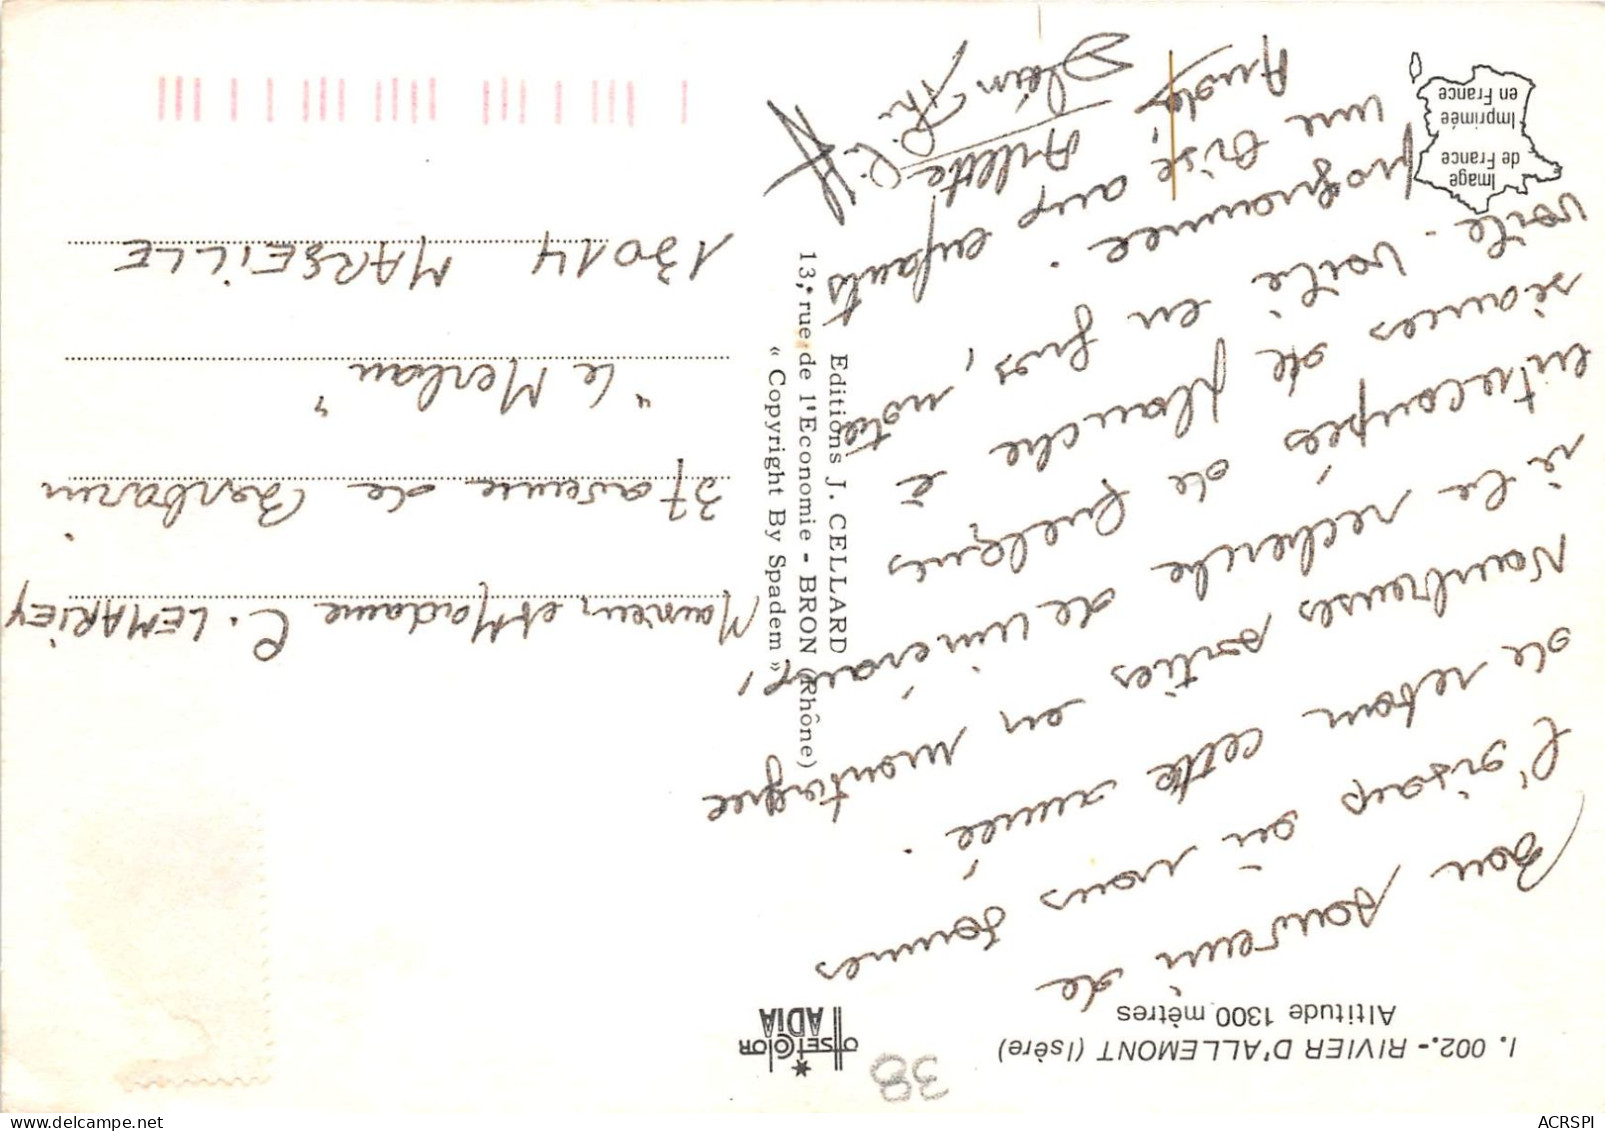 I. 002.- RIVIER D'ALLEMONT (Isère)
Altitude 1300 mètres
38
OFFSETCOLOR
ADIA
Bon souvenir de
l'oisans où nous sommes
de retour cette année.
Nombreuses sorties en montagne
à la recherche de minéraux,
entrecoupées de quelques
séances de planche à
voile. Voilà en gros, notre
programme.
une bise aux enfants
Amitiés,
Arlette
Jean Phi
Editions J. CELLARD
13, rue de l'Economie - BRON (Rhône)
« Copyright By Spadem »
Image
de France
Imprimée
en France
Monsieur et Madame C. LEMARIEY
37 avenue de Barbarin
"Le Merlan"
13014 MARSEILLE
ACRSPI